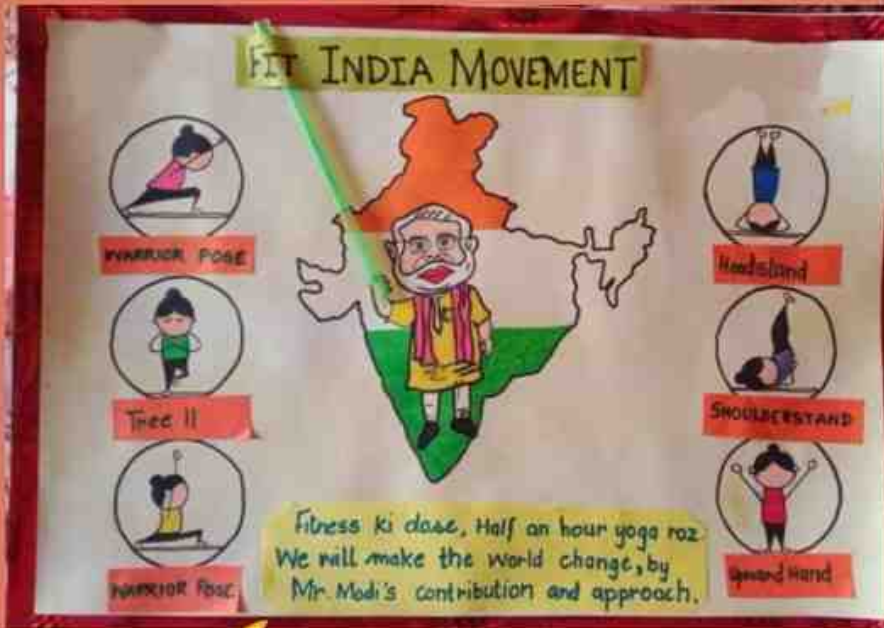 FIT INDIA MOVEMENT
WARRIOR POSE
Tree II
WARRIOR POSE
Headstand
SHOULDERSTAND
Upward Hand
Fitness ki dose, Half an hour yoga roz
We will make the world change, by
Mr. Modi's contribution and approach.